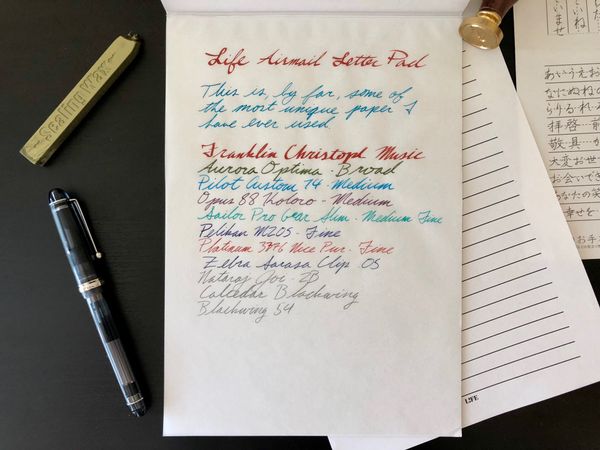 Life Airmail Letter Pad
This is, by far, some of
the most unique paper I
have ever used
Franklin Christoph Music
Aurora Optima · Broad
Pilot Custom 74 · Medium
Opus 88 Koloro - Medium
Sailor Pro Gear Slim - Medium Fine
Pelikan M205 - Fine
Platinum 3776 Nice Pur - Fine
Zebra Sarasa Clip 05
Nataraj Joi - 2B
Caltedar Blackwing
Blackwing 54
Sealing Wax
LIFE
いね
いませ
あいうえお
なにぬねの
らりるれろ
拝啓・前
敬具・か
大変お世
お会いでき
あなたの笑
幸せを
お手